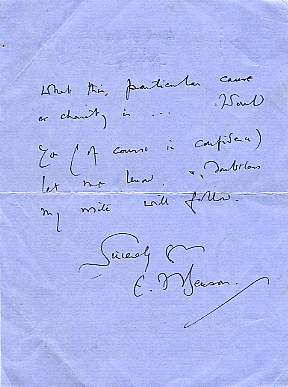 what this particular cause
or charity is ... Would
you (of course in confidence)
let me know. Doubtless
my mite will follow.
Sincerely
E.